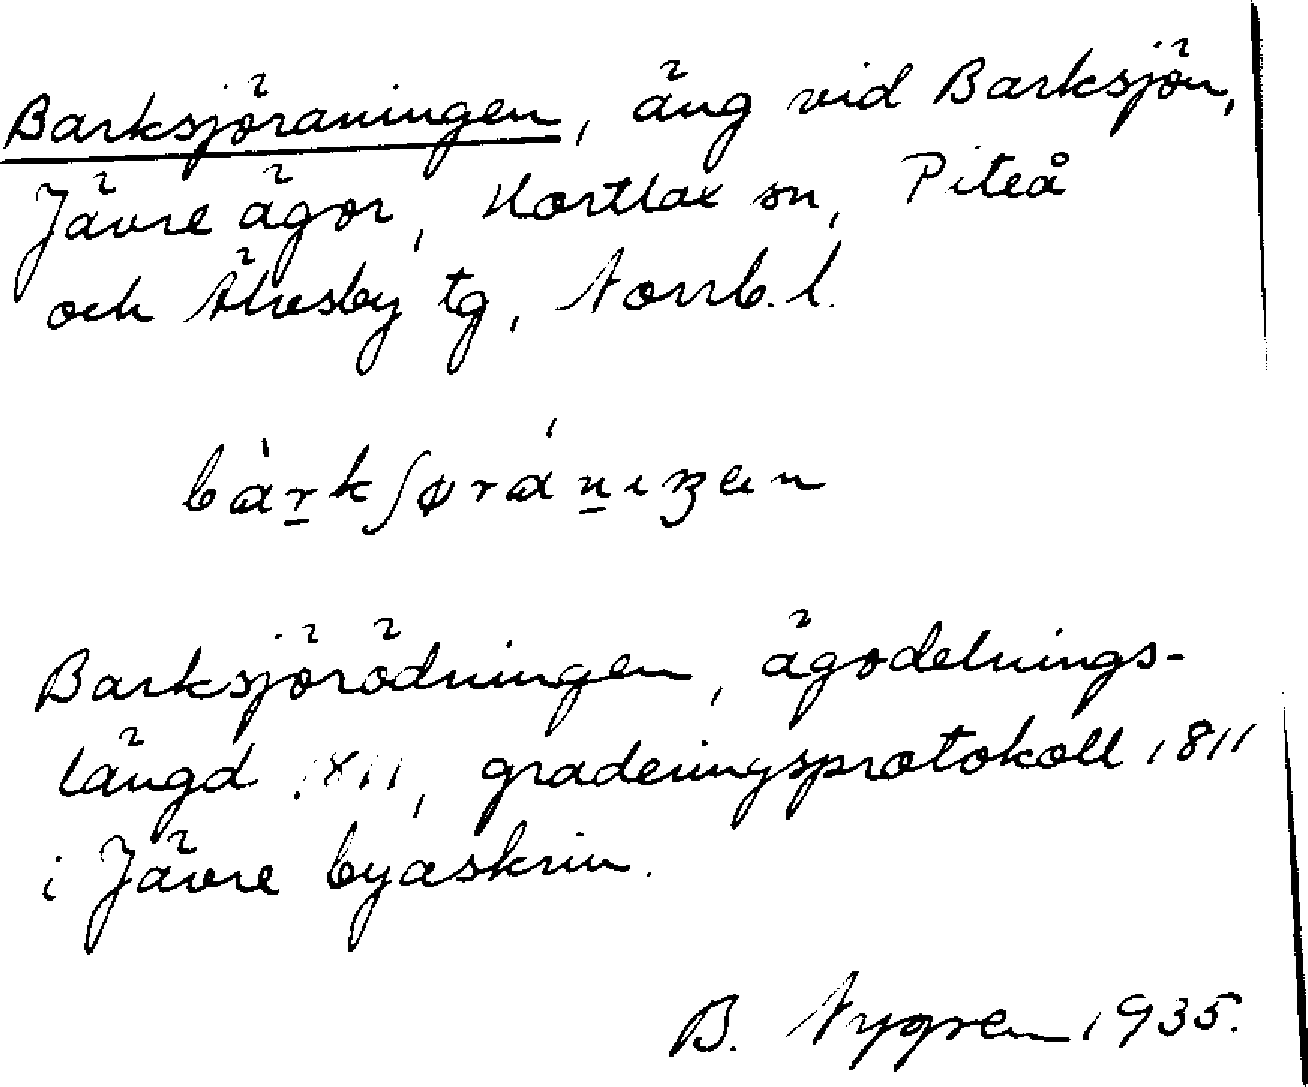 Barksjöraningen, äng vid Barksjön,
Jävre ägor, Hortlax sn, Piteå
och Älvsby tg, Norrb. l.
Barksjörödningen, ägodelnings-
längd 1811, graderingsprotokoll 1811
i Jävre byaskrin.
B. Nygren 1935.